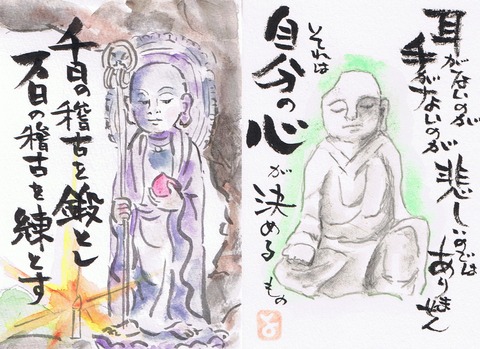 耳がないのが
手がないのが
悲しいのでは
ありません
それは
自分の心が決める
もの
千日の稽古を鍛とし
万日の稽古を練とす